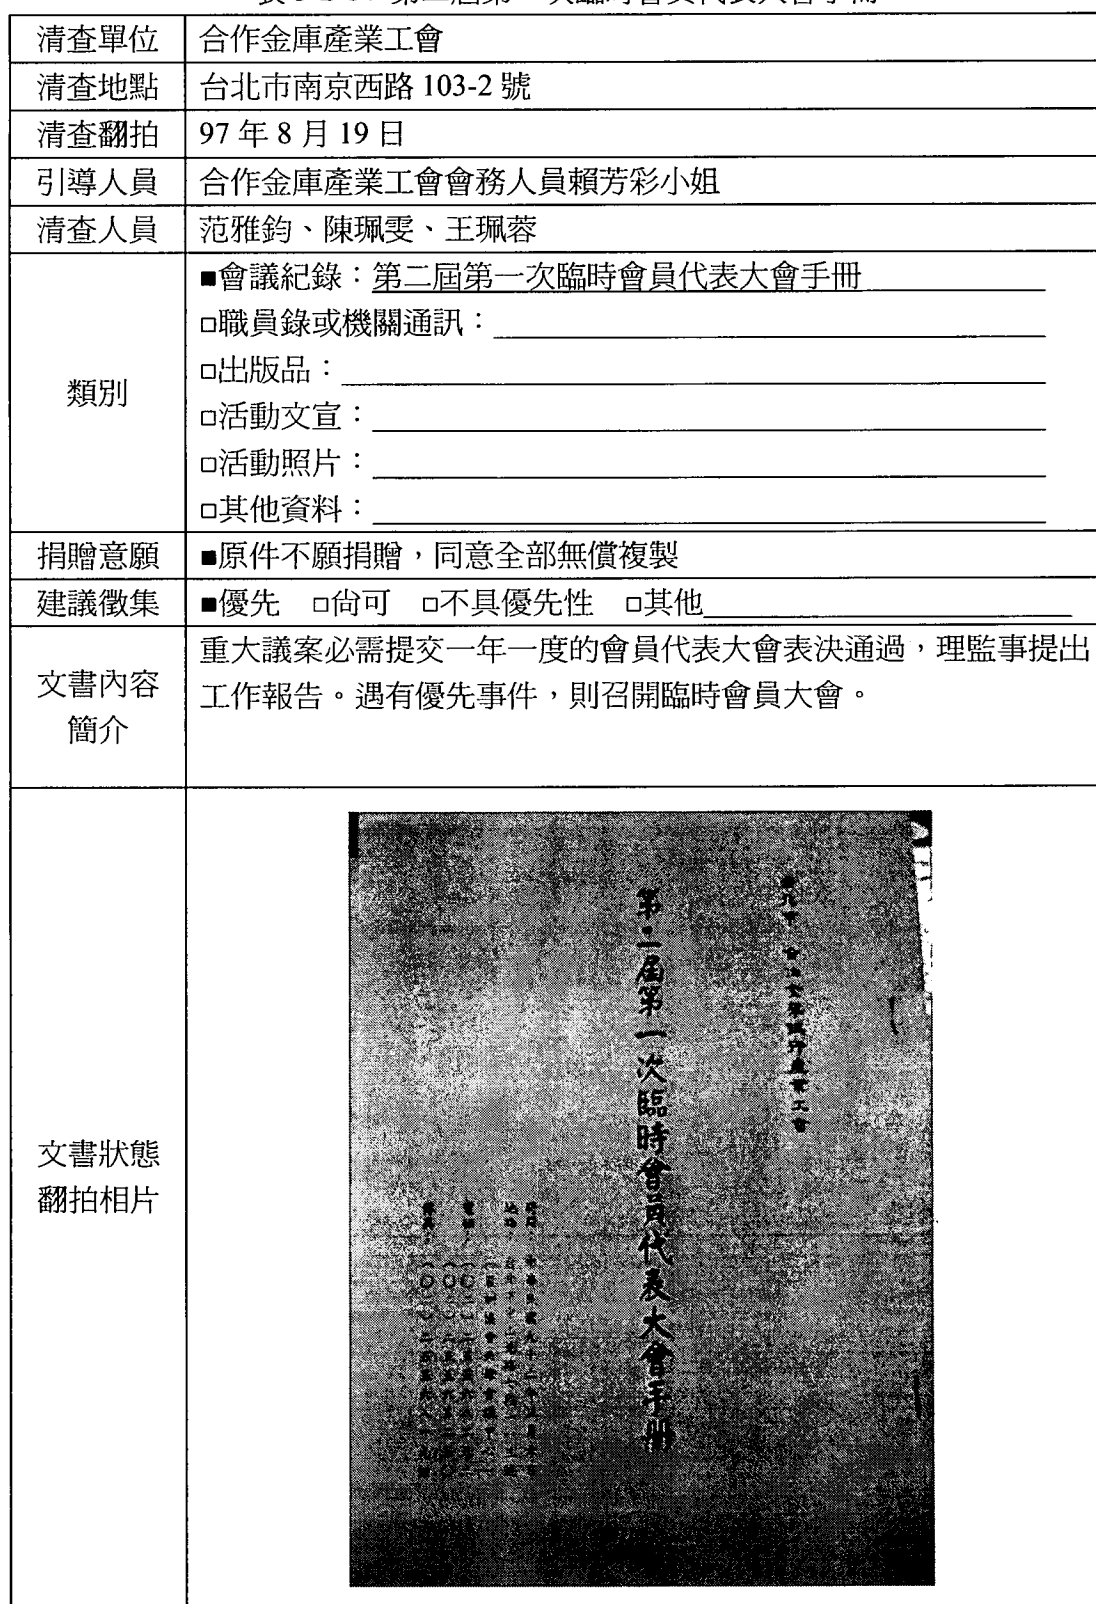 第二屆第一次臨時會員代表大會手冊
清查單位 合作金庫產業工會
清查地點 台北市南京西路 103-2 號
清查翻拍 97 年 8 月 19 日
引導人員 合作金庫產業工會會務人員賴芳彩小姐
清查人員 范雅鈞、陳珮雯、王珮蓉
類別
■會議紀錄：第二屆第一次臨時會員代表大會手冊
□職員錄或機關通訊：
□出版品：
□活動文宣：
□活動照片：
□其他資料：
捐贈意願 ■原件不願捐贈，同意全部無償複製
建議徵集 ■優先 □尚可 □不具優先性 □其他
文書內容
簡介
重大議案必需提交一年一度的會員代表大會表決通過，理監事提出
工作報告。遇有優先事件，則召開臨時會員大會。
文書狀態
翻拍相片
產業工會
第二屆第一次臨時會員代表大會手冊